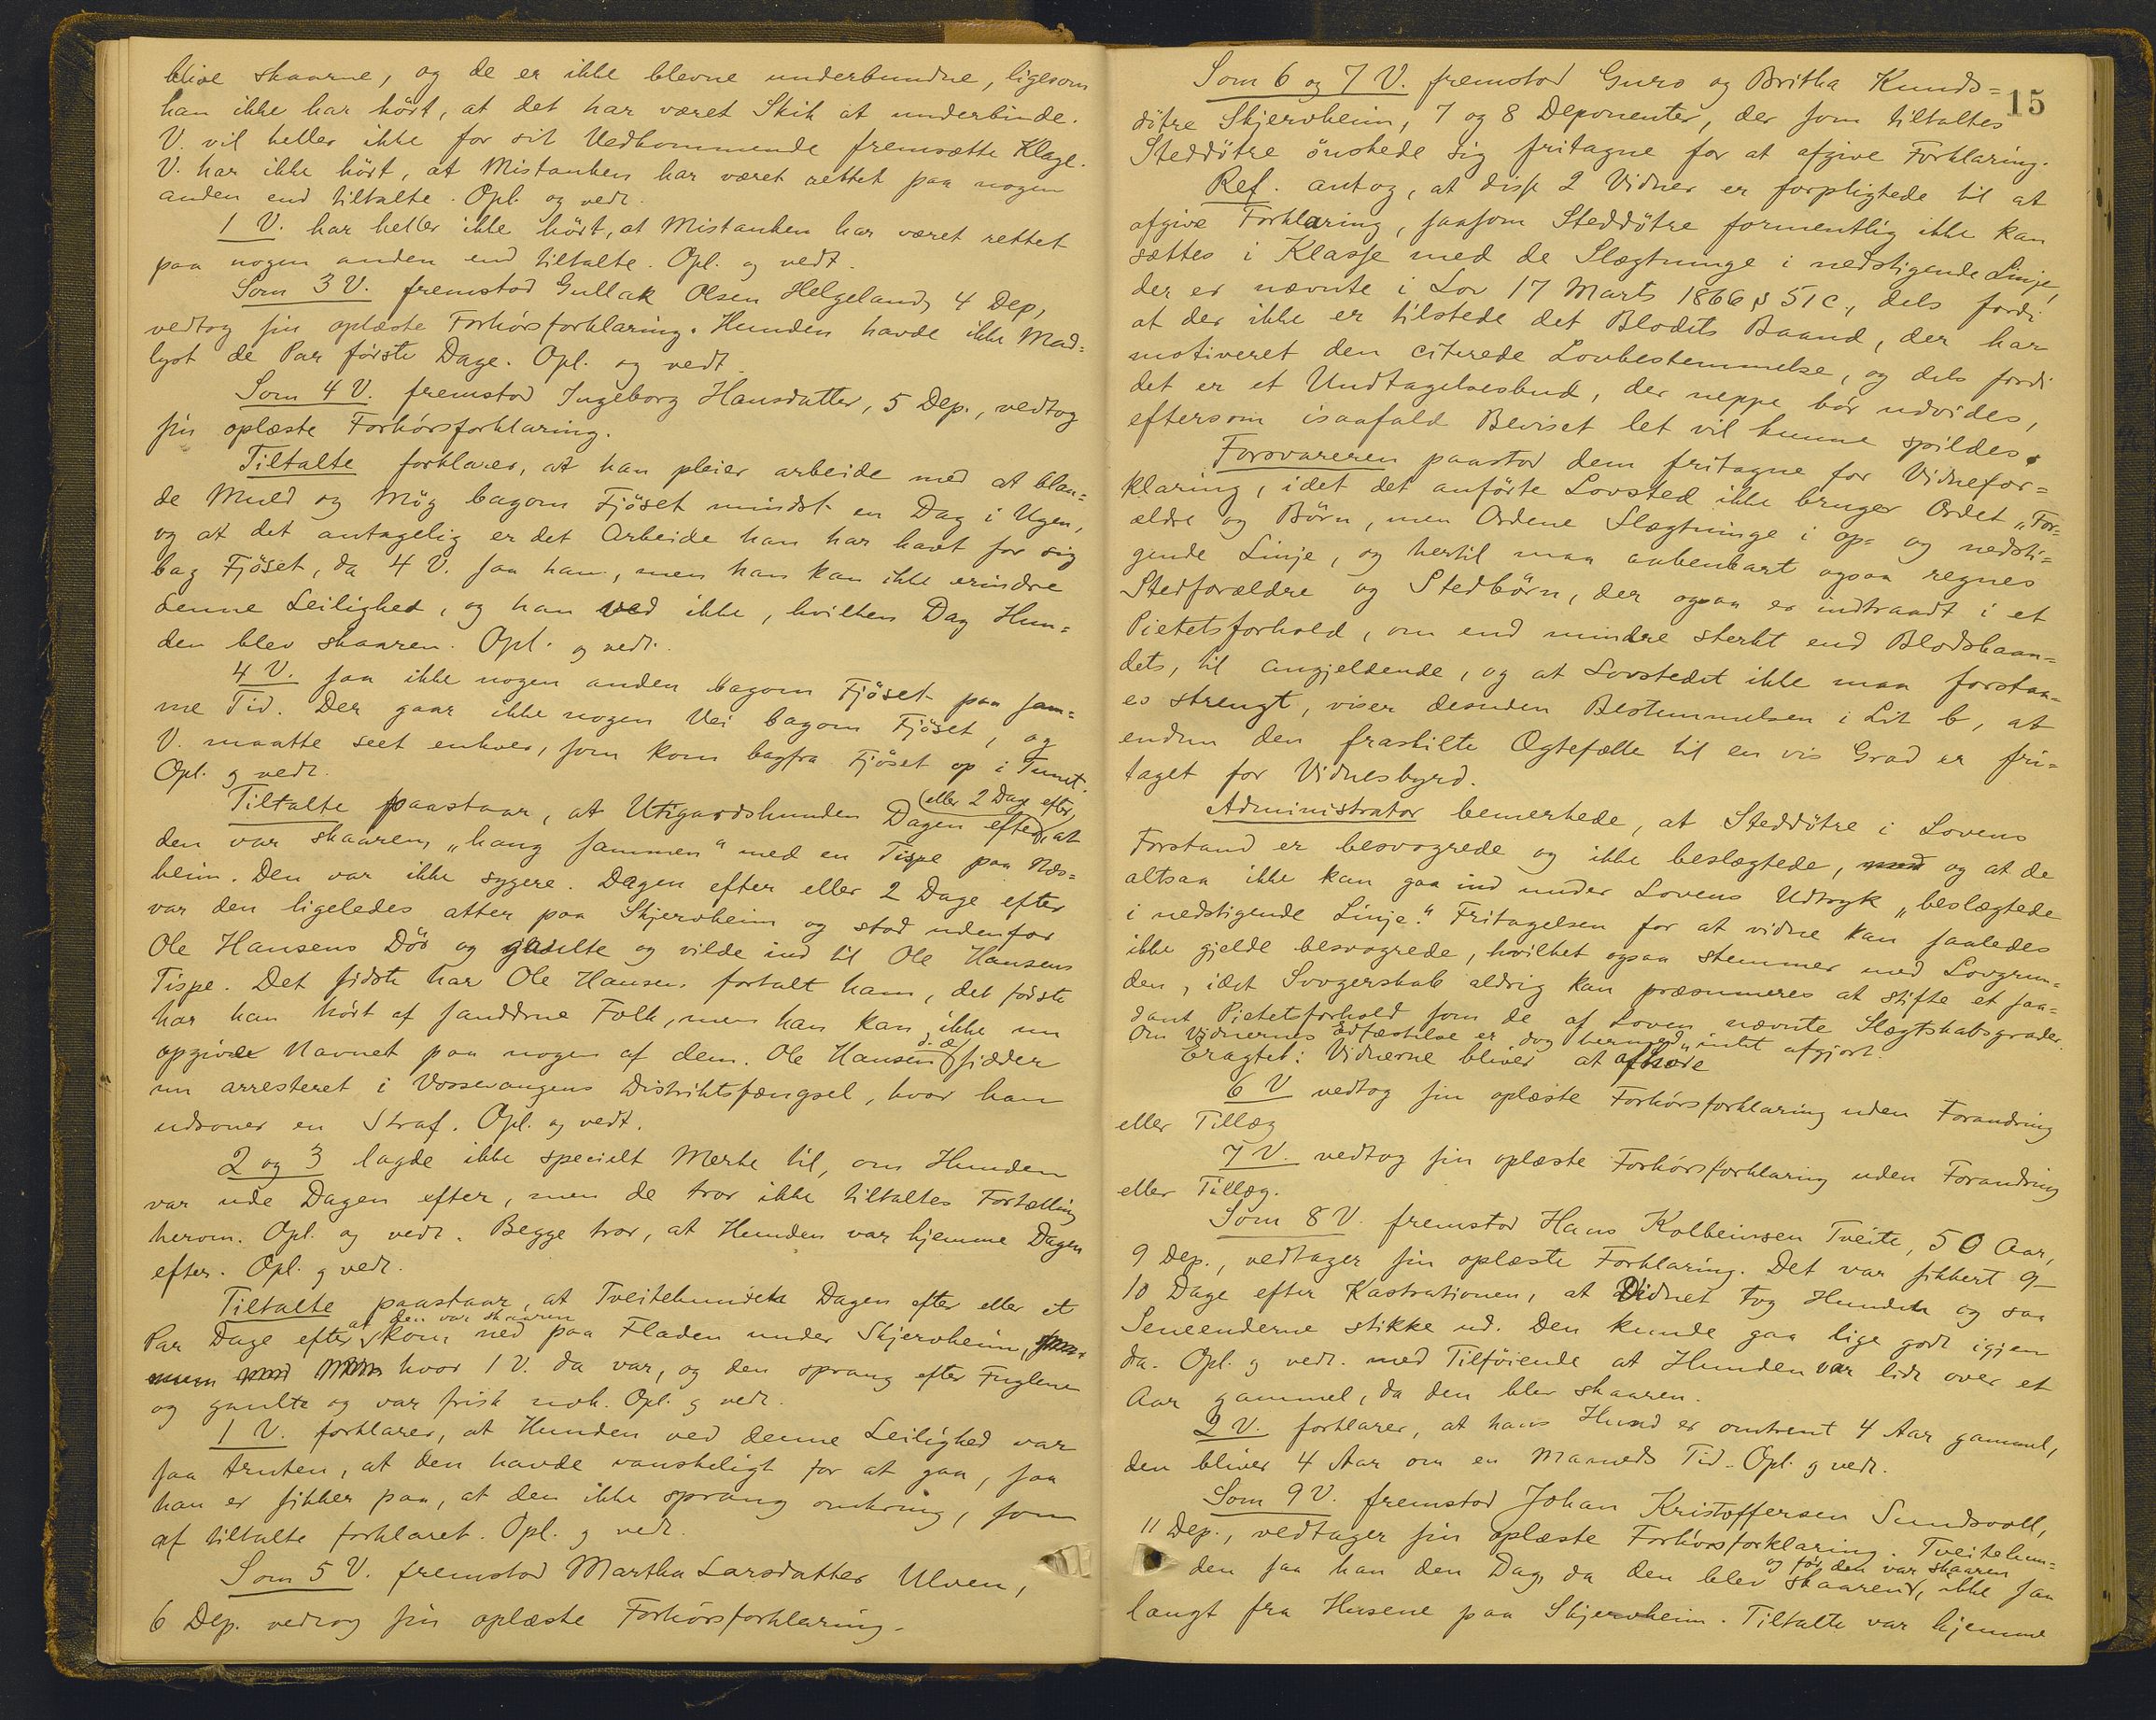 blive skaarne, og de er ikke blevne underbundne, ligesom
han ikke har hört, at det har været Skik at underbinde.
V. vil heller ikke for sit Vedkommende fremsætte Klage.
V. har ikke hört, at Mistanken har været rettet paa nogen
anden end tiltalte. Opl. og vedt.
1 V. har heller ikke hört, at Mistanken har været rettet
paa nogen anden end tiltalte. Opl. og vedt.
Som 3 V. fremstod Gullak Olsen Helgeland, 4 Dep,
vedtog sin oplæste Forhörsforklaring. Hunden havde ikke Mad=
lyst de Par förste Dage. Opl. og vedt.
Som 4 V. fremstod Ingeborg Hansdatter, 5 Dep., vedtog
sin oplæste Forhörsforklaring.
Tiltalte forklarer, at han pleier arbeide med at blan=
de Muld og Mög bagom Fjöset mindst en Dag i Ugen,
og at det antagelig er det Arbeide han har havt for sig
bag Fjöset, da 4 V. saa ham, men han kan ikke erindre
denne Leilighed, og han ved ikke, hvilken Dag Hun=
den blev skaaren. Opl. og vedt.
4 V. saa ikke nogen anden bagom Fjöset paa sam=
me Tid. Der gaar ikke nogen Vei bagom Fjöset, og
V. maatte seet enhver, som kom bagfra Fjöset op i Tunet.
Opl. og vedt.
(eller 2 Dage efter,
Tiltalte paastaar, at Utigardshunden Dagen efter, at
den var skaaren, „hang sammen“ med en Tispe paa Næs=
heim. Den var ikke sygere. Dagen efter eller 2 Dage efter
var den ligeledes atter paa Skjervheim og stod udenfor
Ole Hansens Dör og gaulte og vilde ind til Ole Hansens
Tispe. Det sidste har Ole Hansen fortalt ham, det förste
har han hört af sanddrue Folk, men han kan ikke nu
opgive Navnet paa nogen af dem. Ole Hansen d. æ. sidder
nu arresteret i Vossevangens Distriktsfængsel, hvor han
udsoner en Straf. Opl. og vedt.
2 og 3 lagde ikke specielt Merke til, om Hunden
var ude Dagen efter, men de tror ikke tiltaltes Fortælling
herom. Opl. og vedt. Begge tror, at Hunden var hjemme Dagen
efter. Opl. og vedt.
Tiltalte paastaar, at Tveitehunden Dagen efter eller et
at den var skaaren
Par Dage efter kom ned paa Fladen under Skjervheim,
hvor 1 V. da var, og den sprang efter Fuglene
og gaulte og var frisk nok. Opl. og vedt.
1 V. forklarer, at Hunden ved denne Leilighed var
saa truten, at den havde vanskeligt for at gaa, saa
han er sikker paa, at den ikke sprang omkring, som
af tiltalte forklaret. Opl. og vedt.
Som 5 V. fremstod Martha Larsdatter Ulven,
6 Dep. vedtog sin oplæste Forhörsforklaring.
15
Som 6 og 7 V. fremstod Guro og Britha Knuds=
dötre Skjervheim, 7 og 8 Deponenter, der som tiltaltes
Steddötre önskede sig fritagne for at afgive Forklaring.
Ref. antog, at disse 2 Vidner er forpligtede til at
afgive Forklaring, saasom Steddötre formentlig ikke kan
sættes i Klasse med de Slægtninge i nedstigende Linje,
der er nævnte i Lov 17 Marts 1866 § 51c., dels fordi
at der ikke er tilstede det Blodets Baand, der har
motiveret den citerede Lovbestemmelse, og dels fordi
det er et Undtagelsesbud, der neppe bör udvides,
eftersom isaafald Beviset let vil kunne spildes.
Forsvareren paastod dem fritagne for Vidnefor=
klaring, idet det anförte Lovsted ikke bruger Ordet „For=
ældre og Börn, men Ordene Slægtninge i op= og nedsti=
gende Linje, og hertil maa aabenbart ogsaa regnes
Stedforældre og Stedbörn, der ogsaa er indtraadt i et
Pietetsforhold, om end mindre sterkt end Blodsbaan=
dets, til angjeldende, og at Lovstedet ikke maa forstaa=
es strengt, viser desuden Bestemmelsen i Lit b, at
endnu den fraskilte Ægtefælle til en vis Grad er fri=
taget for Vidnesbyrd.
Administrator bemerkede, at Steddötre i Lovens
Forstand er besvogrede og ikke beslægtede, og at de
altsaa ikke kan gaa ind under Lovens Udtryk „beslægtede
i nedstigende Linje.“ Fritagelsen for at vidne kan saaledes
ikke gjelde besvogrede, hvilket ogsaa stemmer med Lovgrun=
den, idet Svogerskab aldrig kan præsumeres at stifte et saa=
dant Pietetsforhold som de af Loven nævnte Slægtskabsgrader.
Om Vidnernes Edfæstelse er dog hermed intet afgjort.
Eragtet: Vidnerne bliver at afhøre
6 V vedtog sin oplæste Forhörsforklaring uden Forandring
eller Tillæg
7 V. vedtog sin oplæste Forhörsforklaring uden Forandring
eller Tillæg.
Som 8 V. fremstod Hans Kolbeinsen Tveite, 50 Aar,
9 Dep., vedtager sin oplæste Forklaring. Det var sikkert 9–
10 Dage efter Kastrationen, at Vidnet tog Hunden og saa
Seneenderne stikke ud. Den kunde gaa lige godt igjen
da. Opl. og vedt. med Tilföiende at Hunden var lidt over et
Aar gammel, da den blev skaaren.
2 V. forklarer, at hans Hund er omtrent 4 Aar gammel,
den bliver 4 Aar om en Maaneds Tid. Opl. og vedt.
Som 9 V. fremstod Johan Kristoffersen Sundsvoll,
11 Dep., vedtager sin oplæste Forhörsforklaring. Tveitehun=
og för den var skaaren
den saa han den Dag, da den blev skaaren, ikke saa
langt fra Husene paa Skjervheim. Tiltalte var hjemme